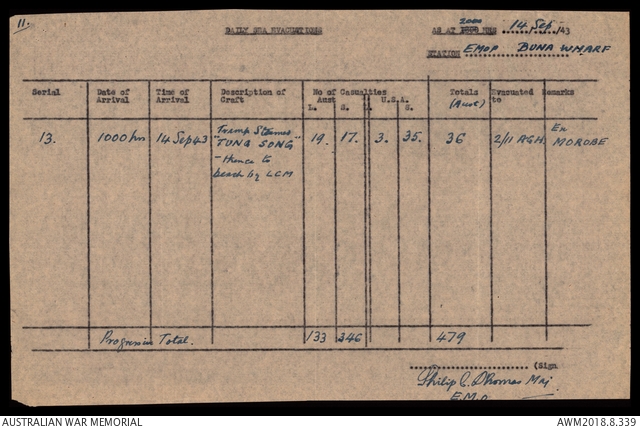 11.
DAILY SEA EVACUATIONS
AS AT 2000 HRS 14 Sep /43
STATION EMOP BUNA WHARF
Serial Date of Arrival Time of Arrival Description of Craft No of Casualties Aust U.S.A. L. S. L. S. Totals (Aust) Evacuated to Remarks
13. 1000 hrs 14 Sep 43 Tramp Steamer 19. 17. 3. 35. 36 2/11 AGH. Ex
"TUNG SONG" MOROBE
- thence to
beach by LCM
Progressive Total. 133 346 479
(Sign
Philip C. Thomas Maj
E.M.O
AUSTRALIAN WAR MEMORIAL
AWM2018.8.339